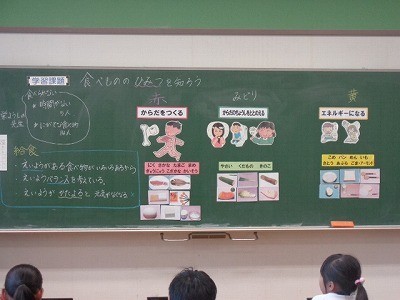 学習課題
食べもののひみつを知ろう
食べられない
時間がない
栄ようしの先生
にがてな食べ物
給食
・えいようがある食べ物がいろいろあるから
・えいようバランスを考えている。
・えいようがかたよると元気がなくなる
赤
からだをつくる
にく さかな たまご まめ
ぎゅうにゅう こざかな かいそう
みどり
からだのちょうしをととのえる
やさい くだもの きのこ
黄
エネルギーになる
こめ パン めん いも
さとう あぶら ごま アーモンド